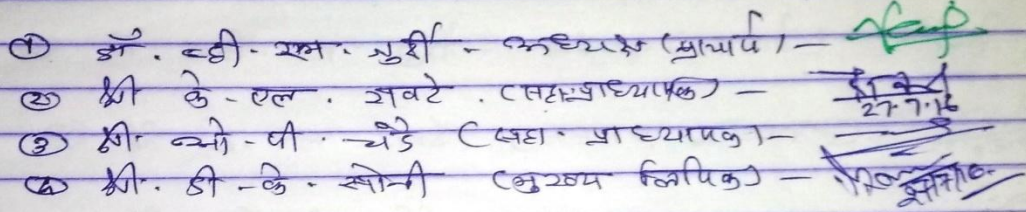 ① डॉ. व्ही. एम. गुर्दी - अध्यक्ष (प्राचार्य) -
② श्री के. एल. रावटे. (सहा. प्राध्यापक) - 27.7.16
③ श्री. ओ. पी. चंडे (सहा. प्राध्यापक) -
④ श्री. डी. के. सोनी (मुख्य लिपिक) -